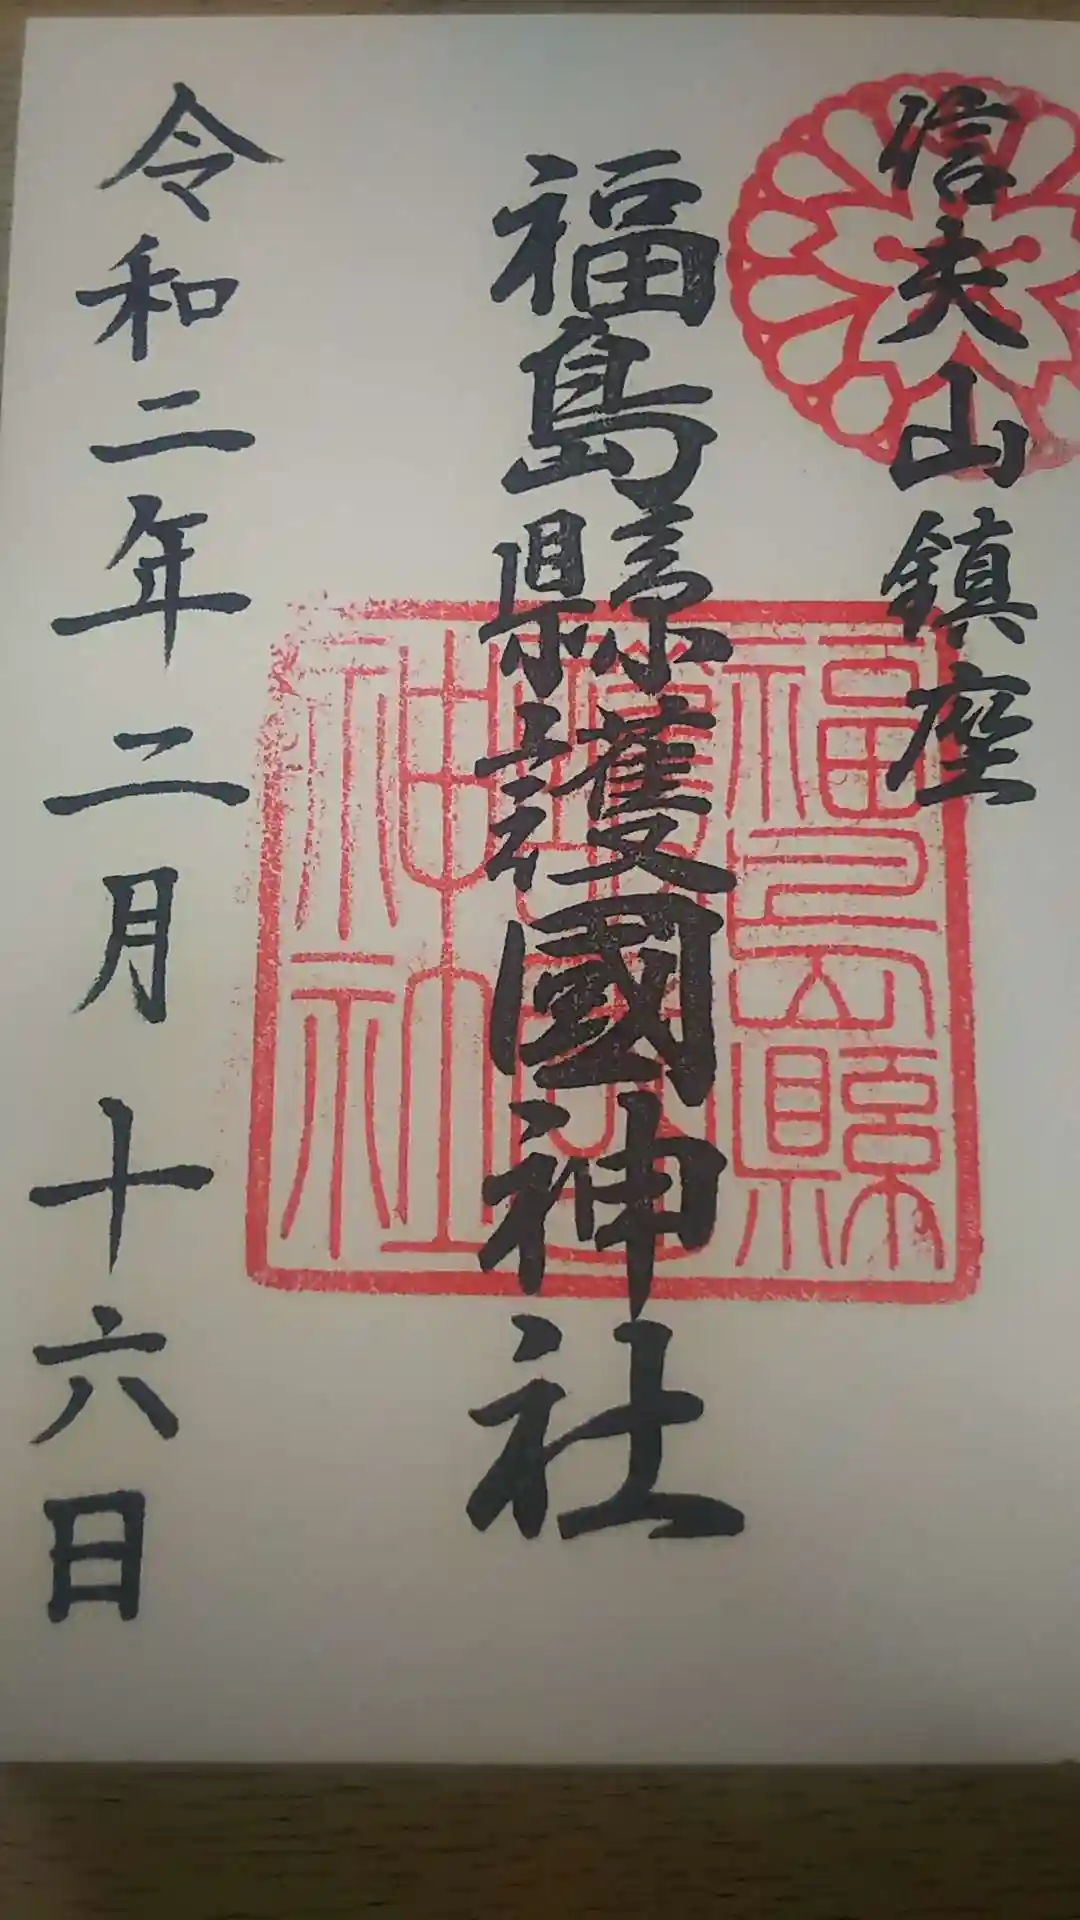 信夫山鎮座
福島縣護國神社
福島縣護國神社
令和二年二月十六日